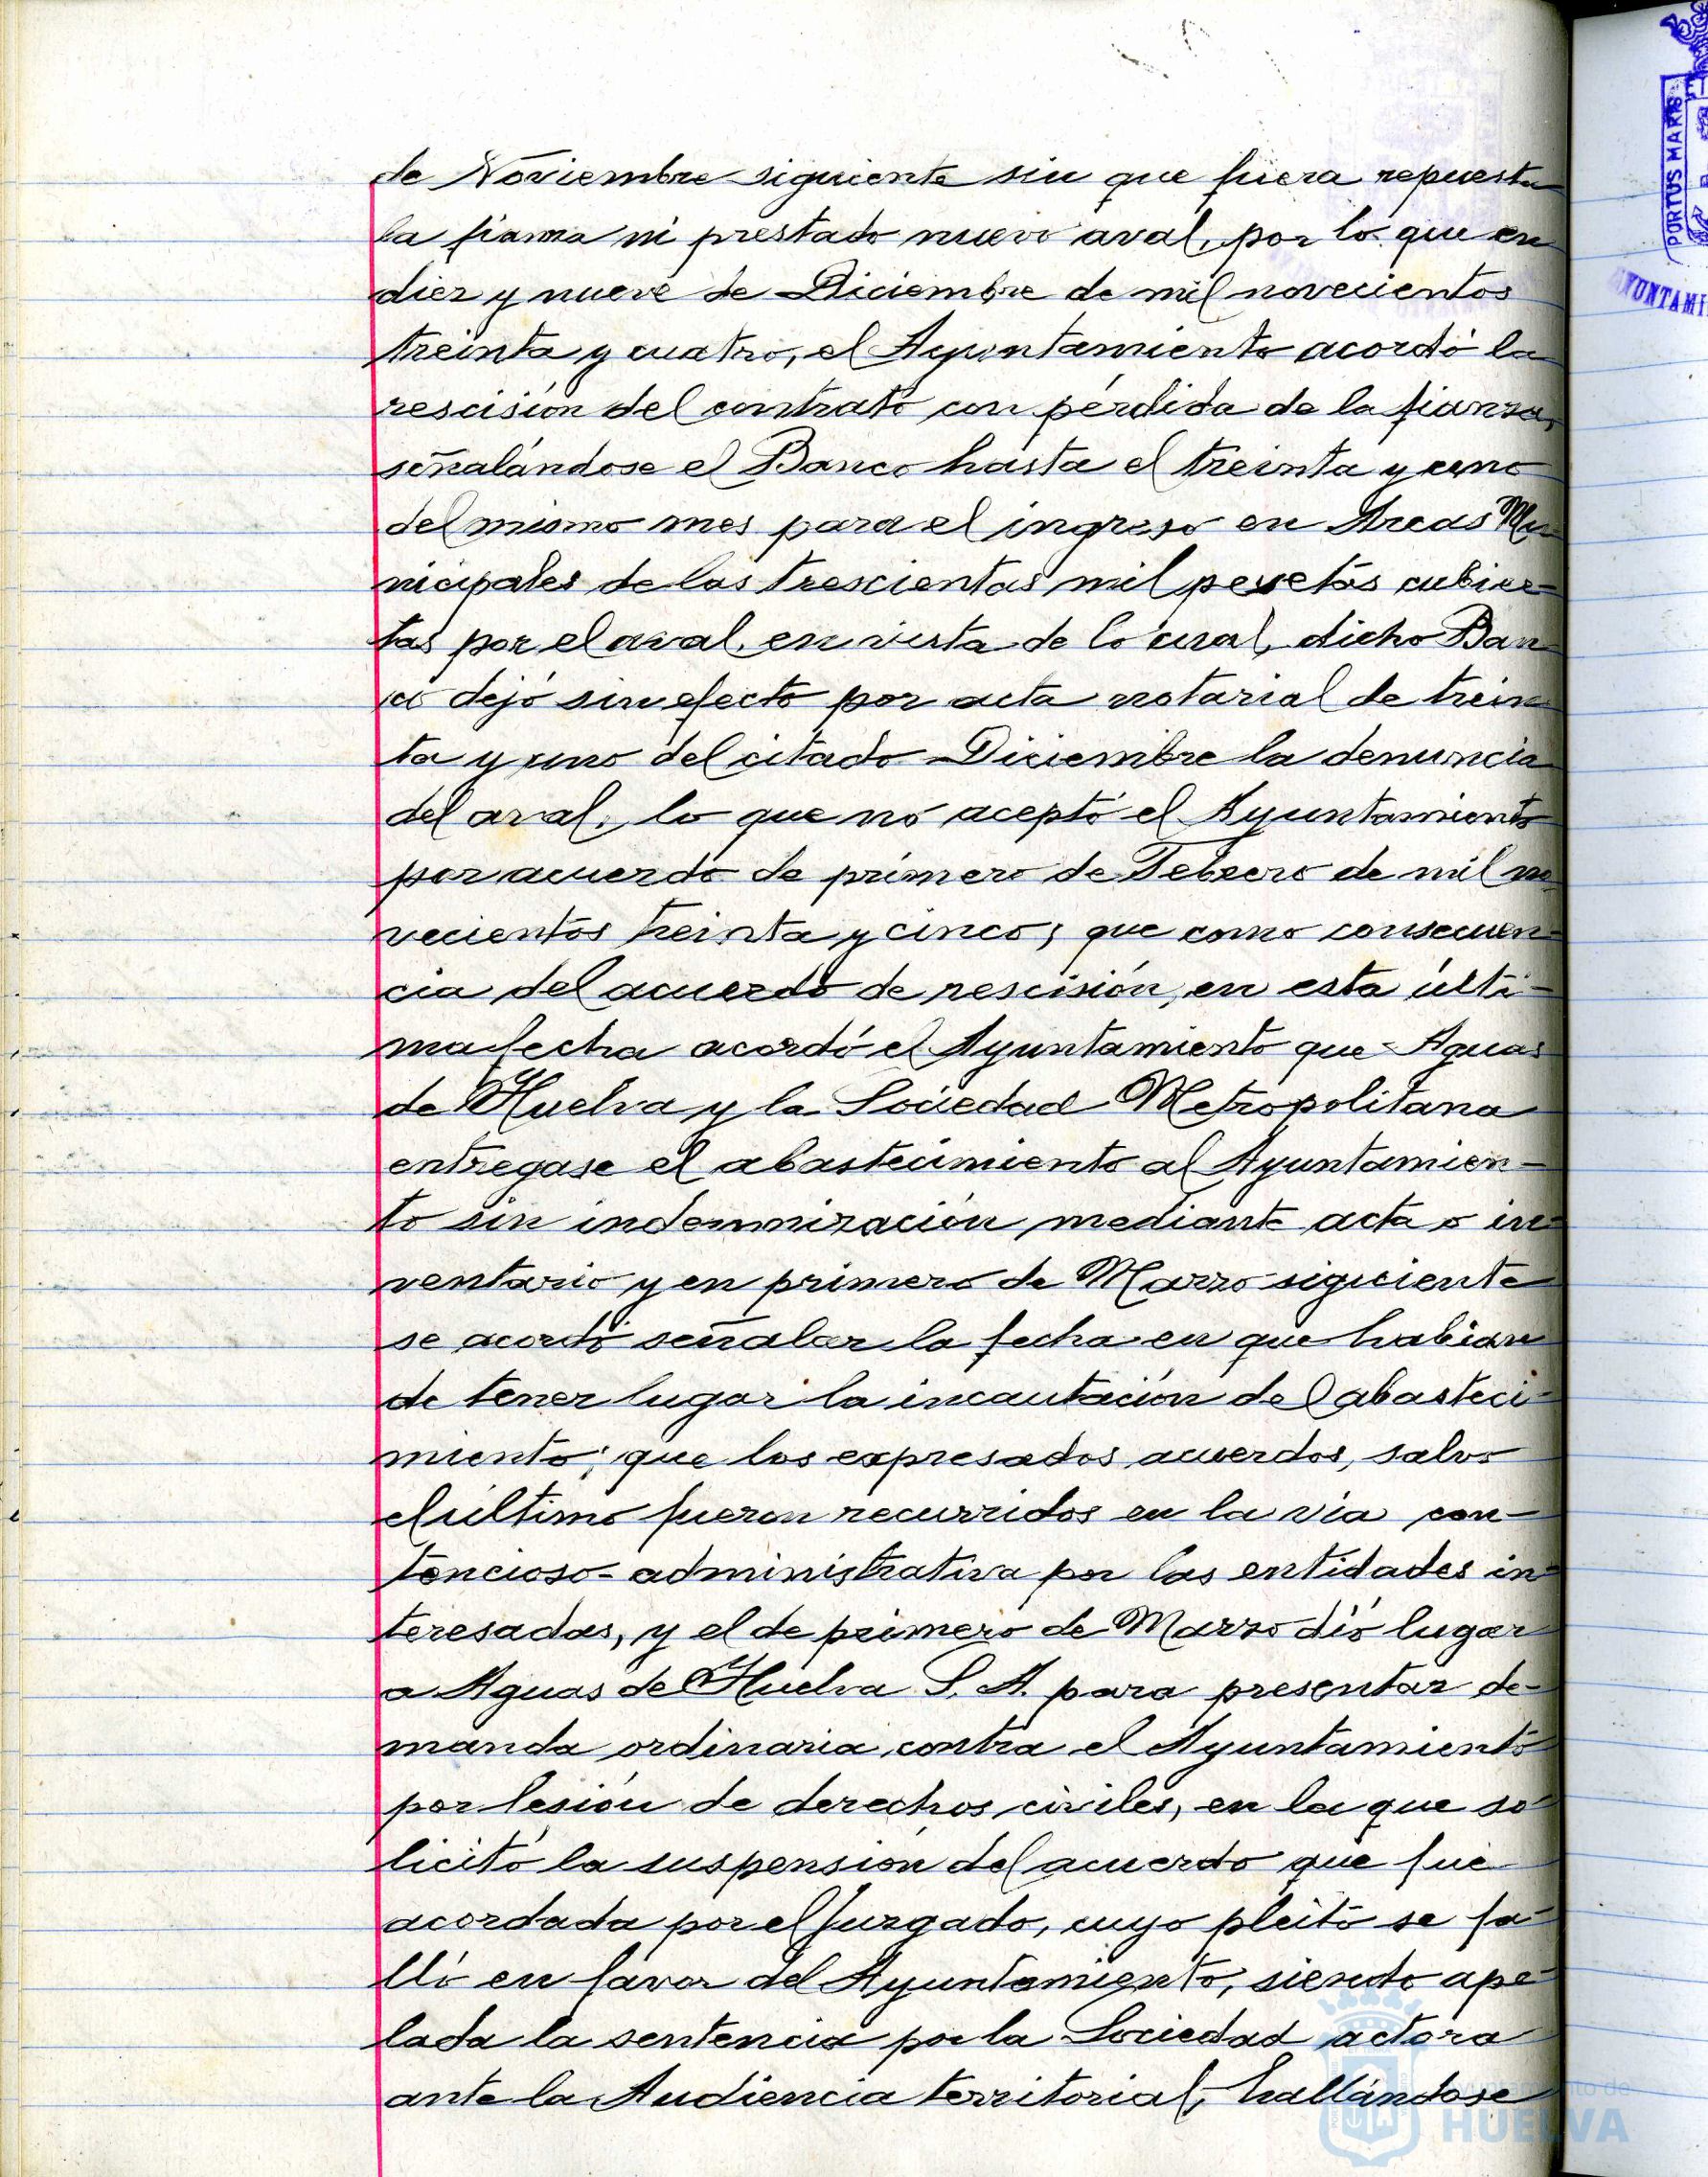 de Noviembre siguiente sin que fuera repuesta
la fianza ni prestado nuevo aval, por lo que en
diez y nueve de Diciembre de mil novecientos
treinta y cuatro, el Ayuntamiento acordó la
rescisión del contrato con pérdida de la fianza,
señalándose el Banco hasta el treinta y uno
del mismo mes para el ingreso en Arcas Mu
nicipales de las trescientas mil pesetas cubier-
tas por el aval, en vista de lo cual, dicho Ban
co dejó sin efecto por acta notarial de trein
ta y uno del citado Diciembre la denuncia
del aval, lo que no aceptó el Ayuntamiento
por acuerdo de primero de Febrero de mil no
vecientos treinta y cinco; que como consecuen-
cia del acuerdo de rescisión, en esta últi-
ma fecha acordó el Ayuntamiento que Aguas
de Huelva y la Sociedad Metropolitana
entregase el abastecimiento al Ayuntamien-
to sin indemnización mediante acta o in-
ventario y en primero de Marzo siguiente
se acordó señalar la fecha en que habian
de tener lugar la incautación del abasteci-
miento; que los expresados acuerdos, salvo
el último fueron recurridos en la via con-
tencioso-administrativa por las entidades in-
teresadas, y el de primero de Marzo dió lugar
a Aguas de Huelva S. A. para presentar de-
manda ordinaria contra el Ayuntamiento
por lesión de derechos civiles, en la que so
licitó la suspensión del acuerdo que fue
acordada por el Juzgado, cuyo pleito se fa-
lló en favor del Ayuntamiento, siendo ape-
lada la sentencia por la Sociedad actora
ante la Audiencia territorial, hallándose
PORTUS MARIS
Ayuntamiento de
HUELVA